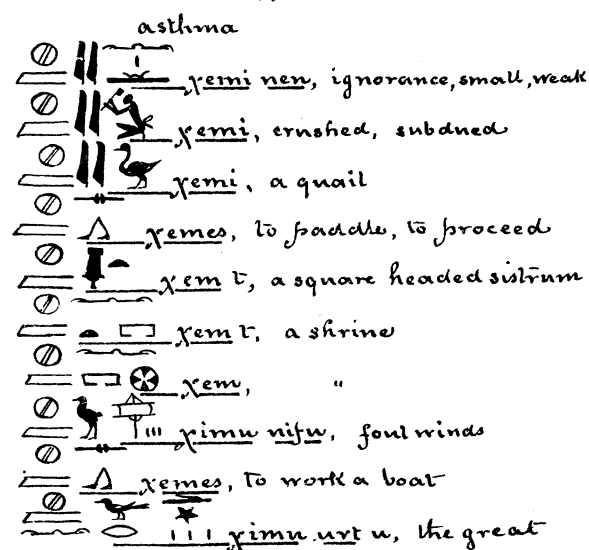 asthma
χemi nen, ignorance, small, weak
χemi, crushed, subdued
χemi, a quail
χemes, to paddle, to proceed
χem t, a square headed sistrum
χem t, a shrine
χem, "
χimu nifu, foul winds
χemes, to work a boat
χimu urt u, the great